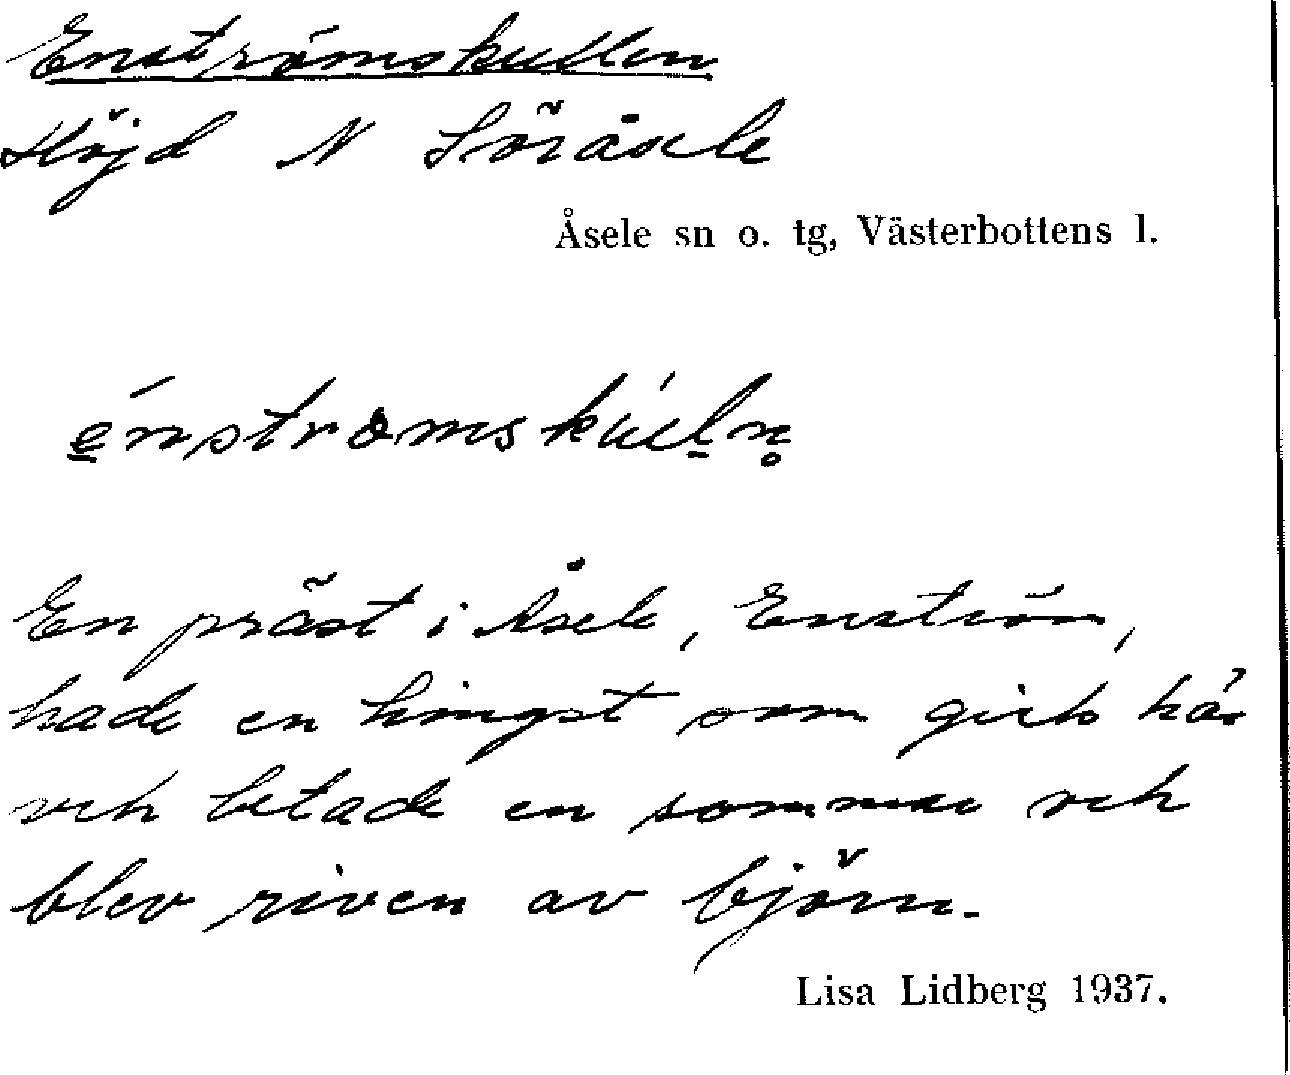 Enströmskullen
Höjd N Söråsele
Åsele sn o. tg, Västerbottens l.
énstromskúeln
En präst i Åsele, Enström,
hade en hingst som gick här
och betade en sommar och
blev riven av björn.
Lisa Lidberg 1937.